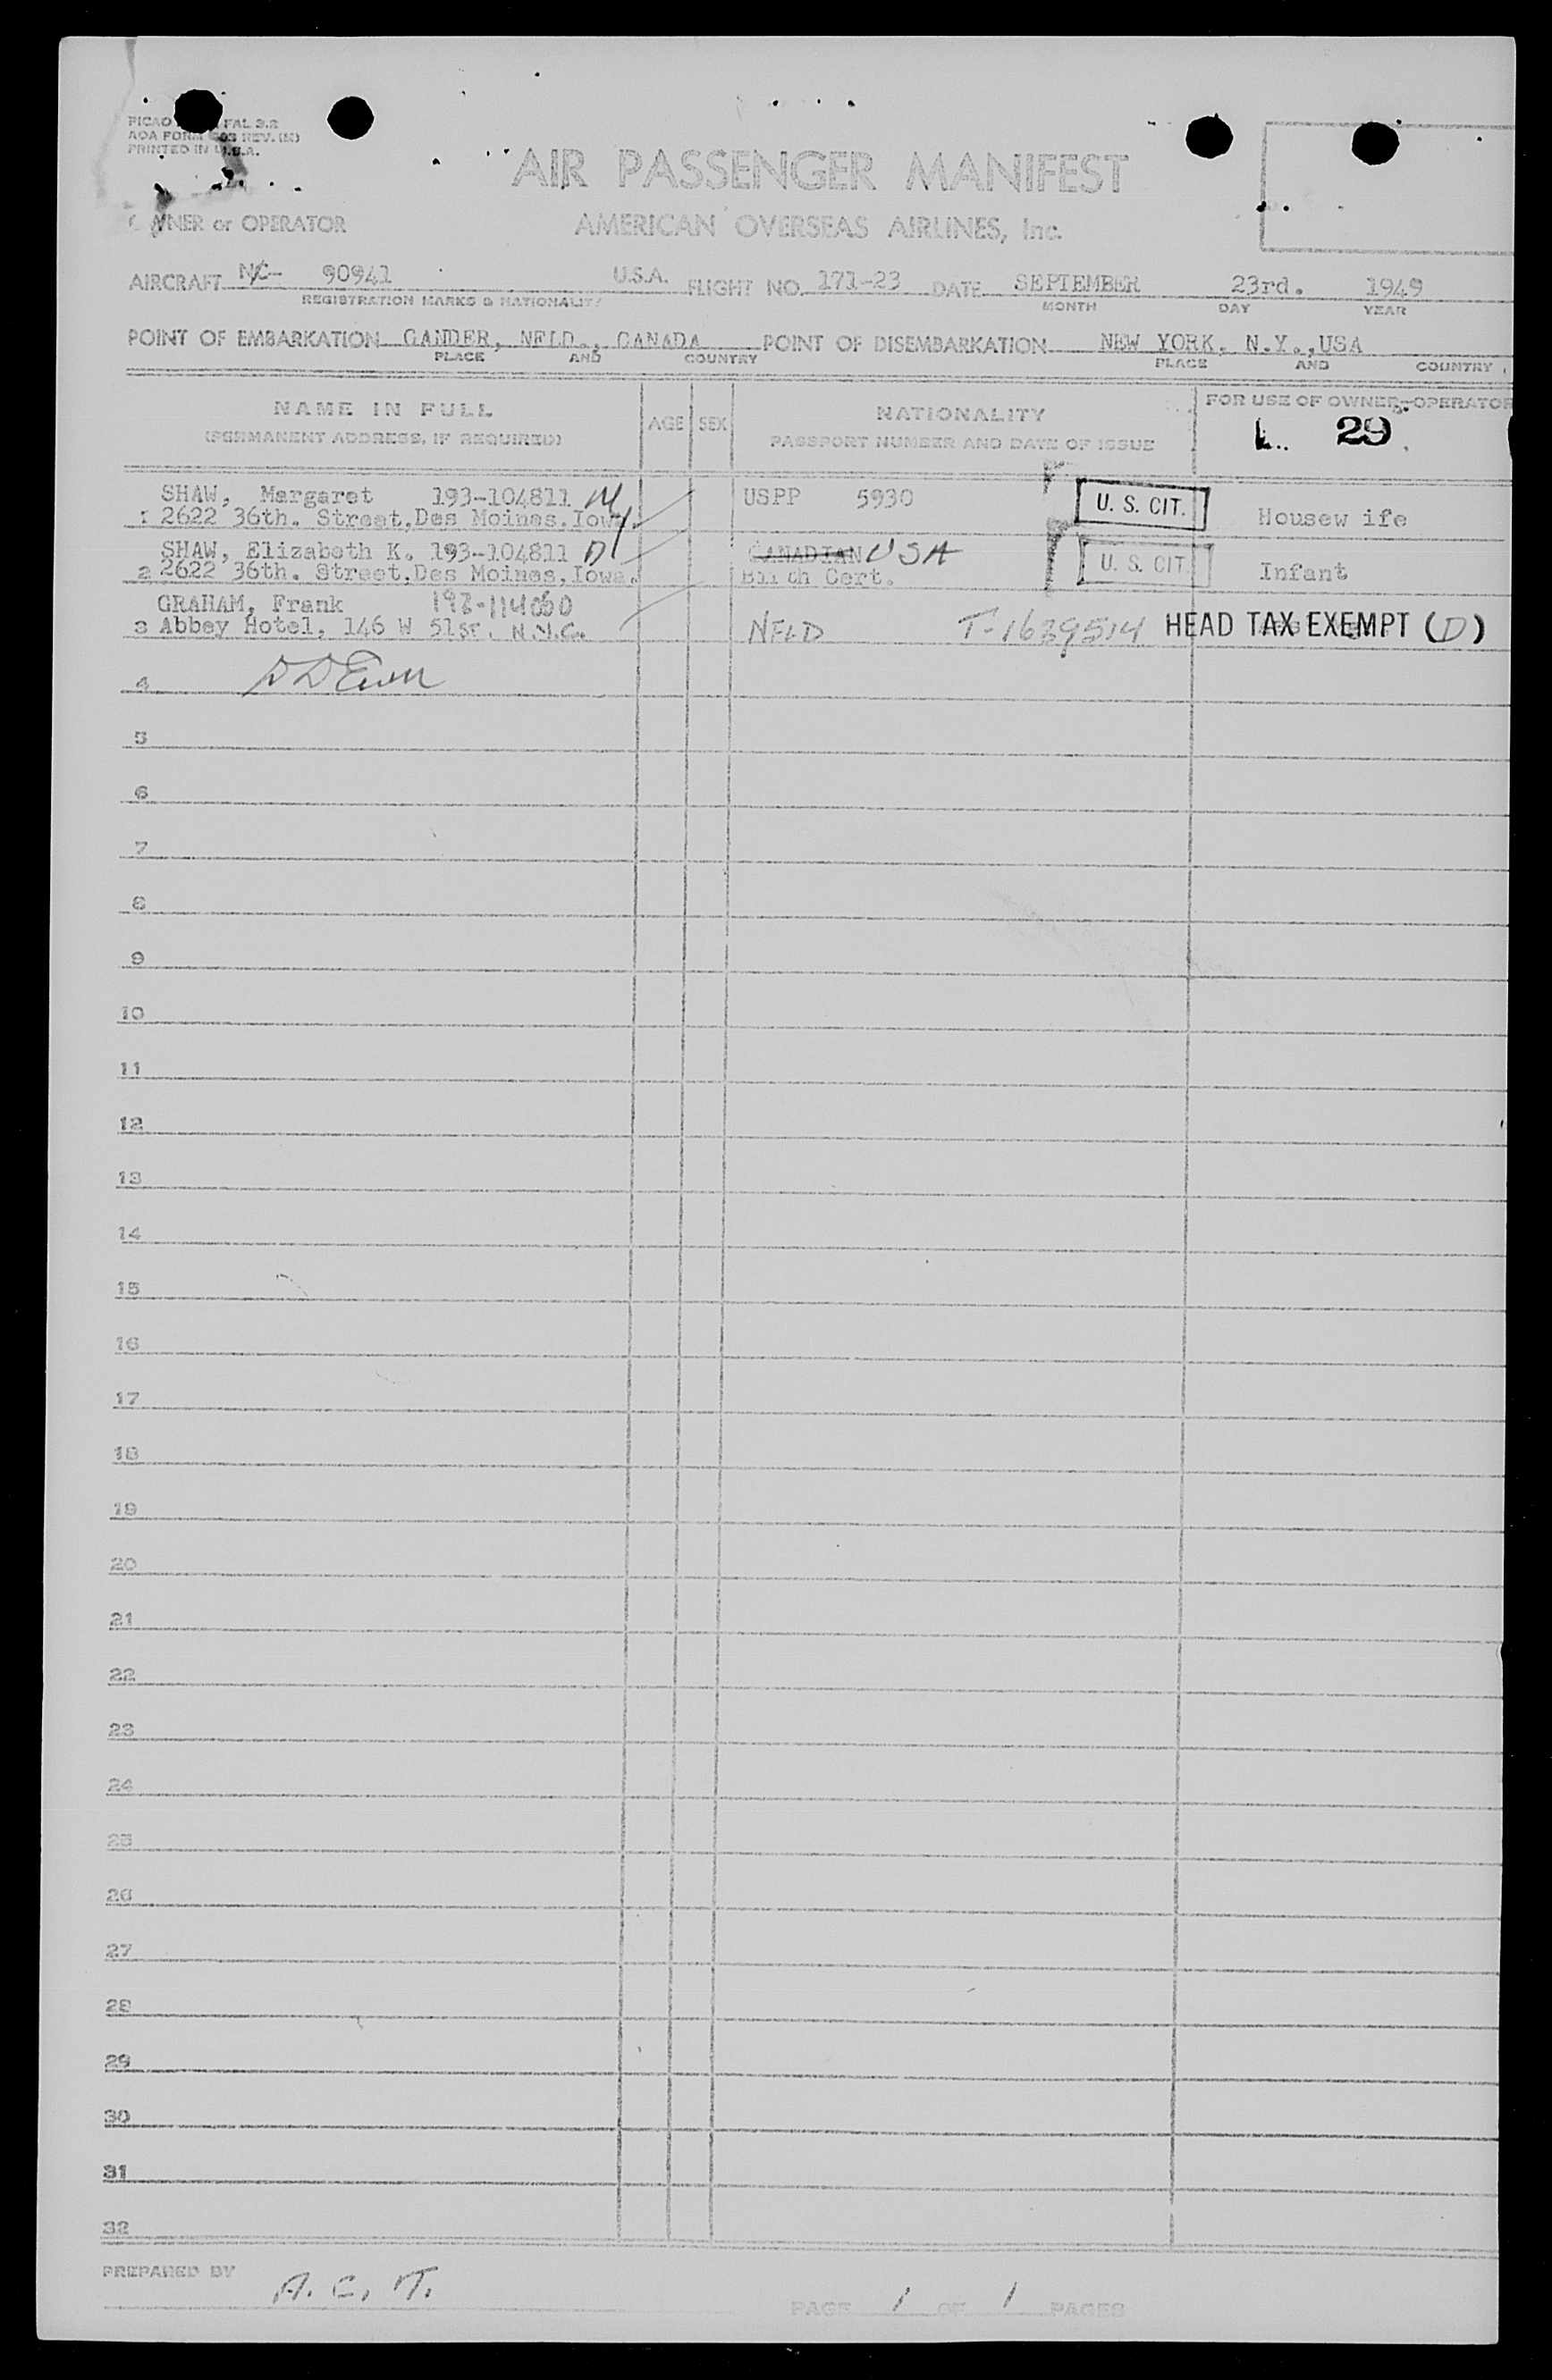 PICAO FAL 3.2
AOA FORM REV. (M)
PRINTED IN U.S.A.
AIR PASSENGER MANIFEST
OWNER or OPERATOR AMERICAN OVERSEAS AIRLINES, Inc.
AIRCRAFT NC- 90941 U.S.A. FLIGHT NO. 171-23 DATE SEPTEMBER 23rd. 1949
REGISTRATION MARKS & NATIONALITY MONTH DAY YEAR
POINT OF EMBARKATION GANDER, NFLD., CANADA POINT OF DISEMBARKATION NEW YORK, N.Y.,USA
PLACE AND COUNTRY PLACE AND COUNTRY
NAME IN FULL AGE SEX NATIONALITY FOR USE OF OWNER-OPERATOR
(PERMANENT ADDRESS, IF REQUIRED) PASSPORT NUMBER AND DATE OF ISSUE 29
SHAW, Margaret 193-104811 M USPP 5930 U. S. CIT. Housew ife
1 2622 36th. Street,Des Moines.Iowa.
SHAW, Elizabeth K. 193-104811 D CANADIAN USA U. S. CIT. Infant
2 2622 36th. Street,Des Moines,Iowa. Birth Cert.
GRAHAM, Frank
3 Abbey Hotel, 146 W 51ST. N.Y.C. NFLD T-1639514 HEAD TAX EXEMPT (D)
4
5
6
7
8
9
10
11
12
13
14
15
16
17
18
19
20
21
22
23
24
25
26
27
28
29
30
31
32
PREPARED BY A. C. T.
PAGE 1 OF 1 PAGES